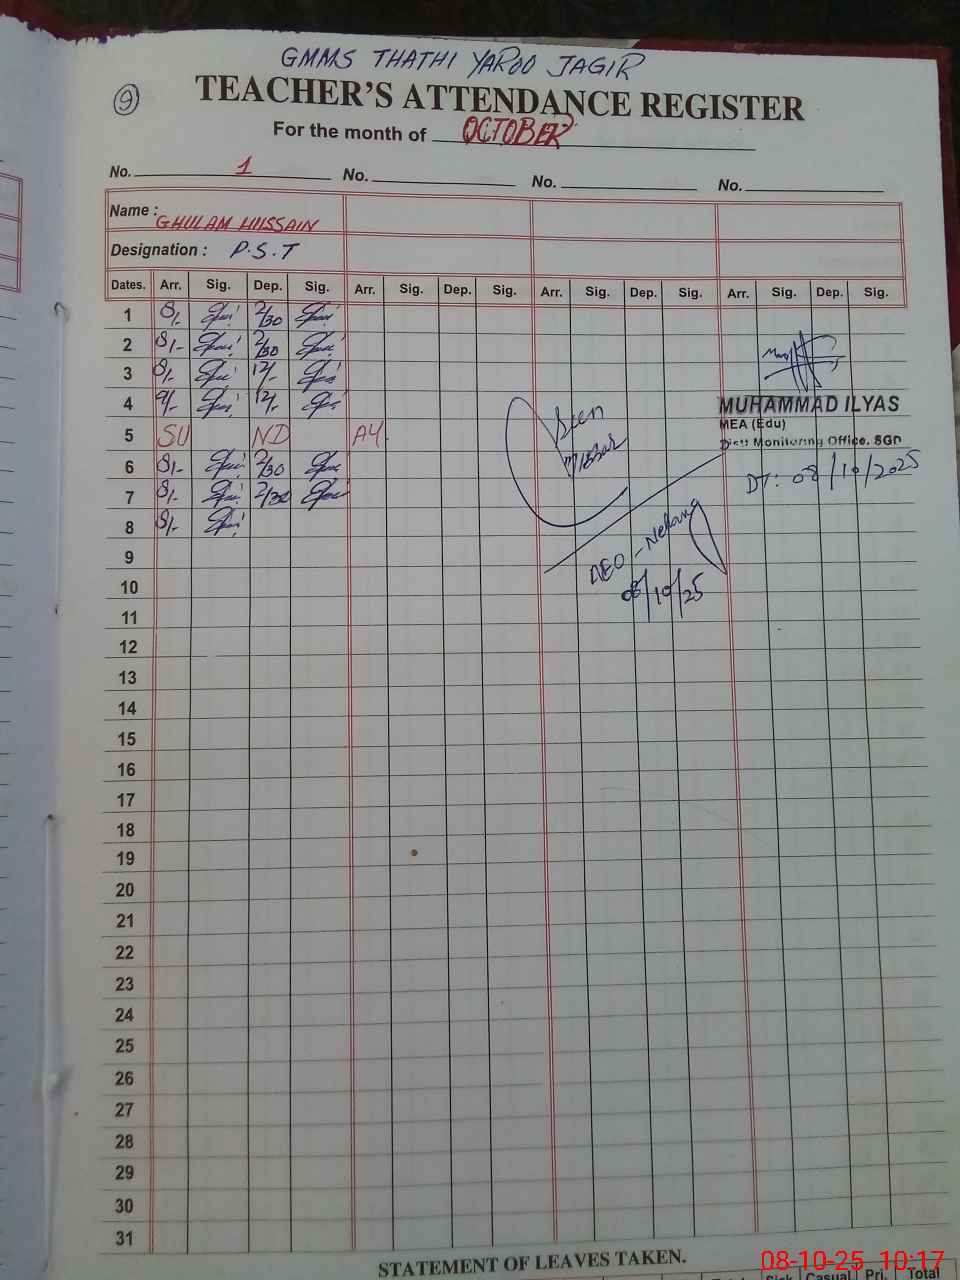 9
GMMS THATHI YAROO JAGIR
TEACHER'S ATTENDANCE REGISTER
For the month of OCTOBER
No. 1 No. No. No.
Name : GHULAM HUSSAIN
Designation : P.S.T
Dates. Arr. Sig. Dep. Sig. Arr. Sig. Dep. Sig. Arr. Sig. Dep. Sig. Arr. Sig. Dep. Sig.
1 8/- 2/30
2 8/- 2/30
3 8/- 12/-
4 8/- 12/-
MUHAMMAD ILYAS
MEA (Edu)
Distt Monitoring Office. SGD
DT: 08/10/2025
Seen
5 SU ND AY.
6 8/- 2/30
7 8/- 2/30
8 8/-
AEO - Nehang
08/10/25
9
10
11
12
13
14
15
16
17
18
19
20
21
22
23
24
25
26
27
28
29
30
31
STATEMENT OF LEAVES TAKEN.
08-10-25 10:17
Sick Casual Pri. Total